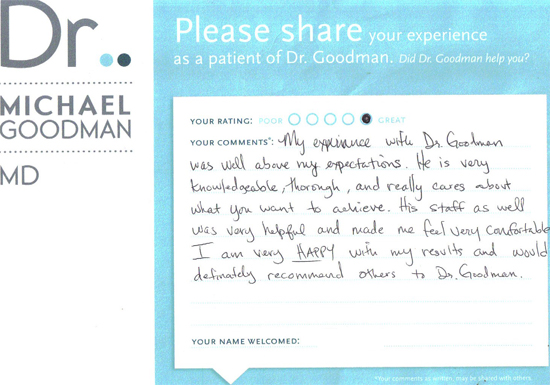 Dr..
MICHAEL
GOODMAN
MD
Please share your experience
as a patient of Dr. Goodman. Did Dr. Goodman help you?
YOUR RATING: POOR GREAT
YOUR COMMENTS*: My experience with Dr. Goodman
was well above my expectations. He is very
knowledgeable, thorough, and really cares about
what you want to achieve. His staff as well
was very helpful and made me feel very comfortable
I am very HAPPY with my results and would
definately recommend others to Dr. Goodman.
YOUR NAME WELCOMED:
*Your comments as written, may be shared with others.